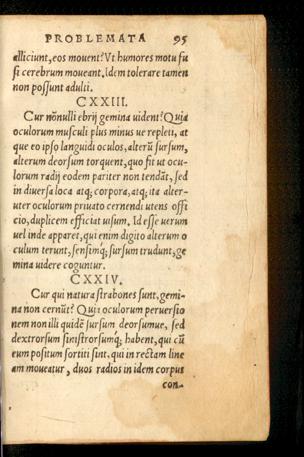 PROBLEMATA 95
alliciunt, eos mouent? Vt humores motu fu
si cerebrum moueant. Idem tolerare tamen
non possunt adulti.
CXXIII.
Cur nōnulli ebrij gemina uident? Quia
oculorum musculi plus minus ue repleti, at
que eo ipso languidi oculos, alterū sursum,
alterum deorsum torquent, quo fit ut ocu-
lorum radij eodem pariter non tendāt, sed
in diuersa loca atq; corpora, atq; ita alter-
uter oculorum priuato cernendi utens offi
cio, duplicem efficiat uisum. Id esse uerum
uel inde apparet, qui enim digito alterum o
culum terunt, sensimq́; sursum trudunt, ge
mina uidere coguntur.
CXXIV.
Cur qui natura strabones sunt, gemi-
na non cernūt? Quia oculorum peruersio
nem non illi quidē sursum deorsumue, sed
dextrorsum sinistrorsumq́; habent, qui cū
eum positum sortiti sint, qui in rectam line
am moueatur, duos radios in idem corpus
con-